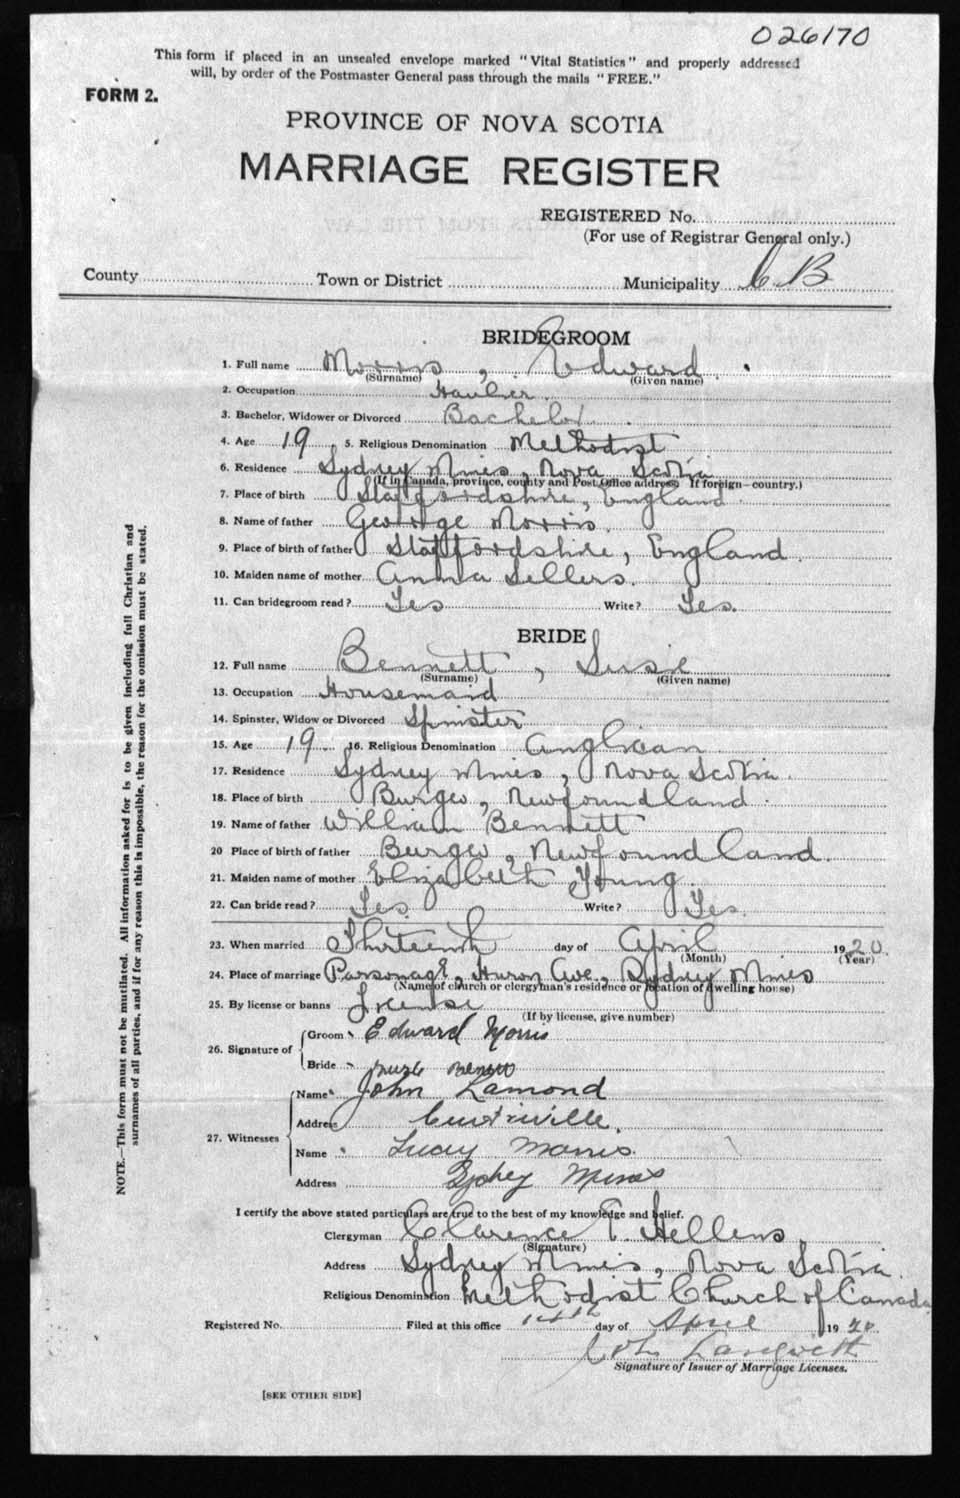 026170
This form if placed in an unsealed envelope marked "Vital Statistics" and properly addressed
will, by order of the Postmaster General pass through the mails "FREE."
FORM 2.
PROVINCE OF NOVA SCOTIA
MARRIAGE REGISTER
REGISTERED No.
(For use of Registrar General only.)
County Town or District Municipality C. B
BRIDEGROOM
1. Full name Morris, Edward
(Surname) (Given name)
2. Occupation Haulier.
3. Bachelor, Widower or Divorced Bachelor
4. Age 19 5. Religious Denomination Methodist
6. Residence Sydney Mines, Nova Scotia
(If in Canada, province, county and Post Office address If foreign—country.)
7. Place of birth Staffordshire, England
8. Name of father George Morris.
9. Place of birth of father Staffordshire, England.
10. Maiden name of mother Anna Sellers.
11. Can bridegroom read? Yes Write? Yes.
BRIDE
12. Full name Bennett, Susie
(Surname) (Given name)
13. Occupation Housemaid
14. Spinster, Widow or Divorced Spinster
15. Age 19 16. Religious Denomination Anglican
17. Residence Sydney Mines, Nova Scotia.
18. Place of birth Burgeo, Newfoundland.
19. Name of father William Bennett
20 Place of birth of father Burgeo, Newfoundland.
21. Maiden name of mother Elizabeth Young.
22. Can bride read? Yes. Write? Yes.
23. When married Thirteenth day of April 1920.
(Month) (Year)
24. Place of marriage Parsonage, Huron Ave., Sydney Mines
(Name of church or clergyman's residence or location of dwelling house)
25. By license or banns License
(If by license, give number)
26. Signature of
Groom Edward Morris
Bride
27. Witnesses
Name John Lamond
Address
Name Lucy Morris.
Address Sydney Mines
I certify the above stated particulars are true to the best of my knowledge and belief.
Clergyman Clarence E. Hellens
(Signature)
Address Sydney Mines, Nova Scotia.
Religious Denomination Methodist Church of Canada.
Registered No. Filed at this office 14th day of April 1920.
John
Signature of Issuer of Marriage Licenses.
[SEE OTHER SIDE]
NOTE.—This form must not be mutilated. All information asked for is to be given including full Christian and
surnames of all parties, and if for any reason this is impossible, the reason for the omission must be stated.